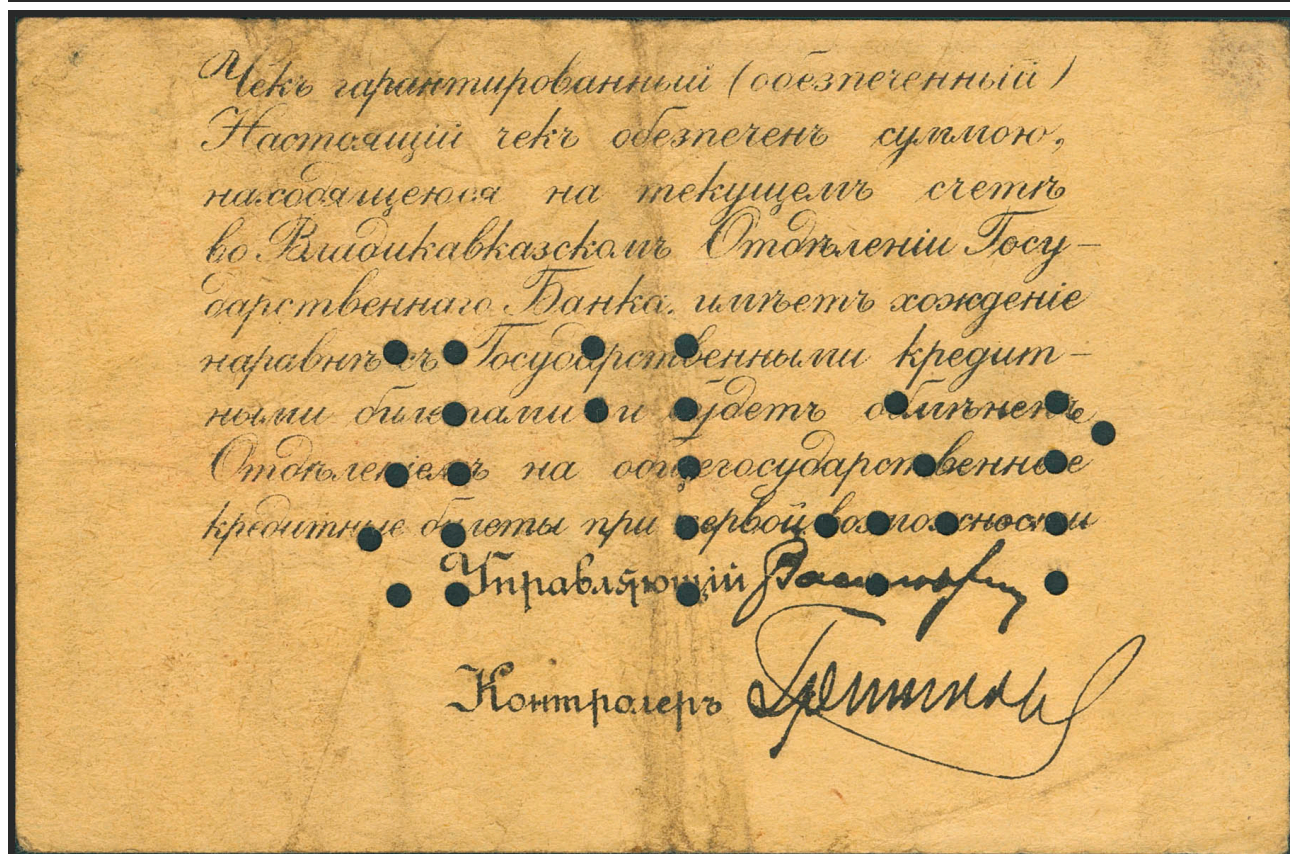 Чекъ гарантированный (обезпеченный)
Настоящій чекъ обезпеченъ суммою,
находящеюся на текущемъ счетѣ
во Владикавказскомъ Отдѣленіи Госу-
дарственнаго Банка. имѣетъ хожденіе
наравнѣ съ Государственными кредит-
ными билетами и будетъ обмѣненъ
Отдѣленіемъ на общегосударственные
кредитные билеты при первой возможности
Управляющій
Контролеръ